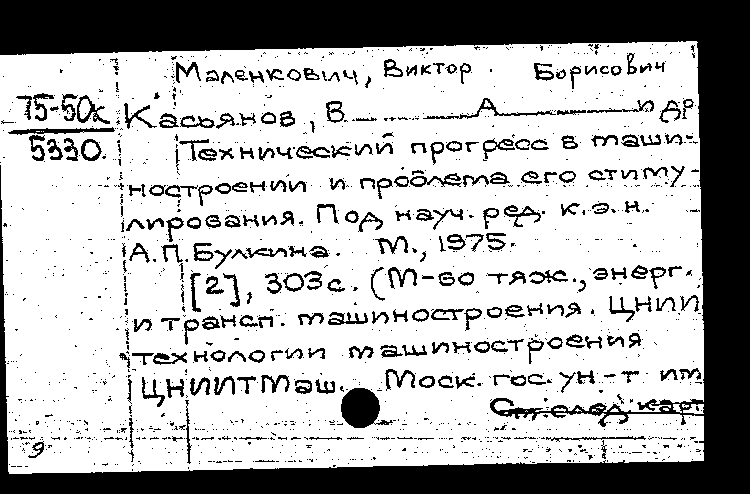 Маленкович, Виктор. Борисович
75-50к Касьянов, В.                А.                и др
5330. Технический прогресс в маши-
ностроении и проблема его стиму-
лирования. Под науч. ред. к.э.н.
А.П. Булкина. М., 1975.
[2], 303 с. (М-во тяж., энерг.
и трансп. машиностроения. ЦНИИ
технологии машиностроения
ЦНИИТМаш. Моск. гос. ун.-т им
См. след. карт
9